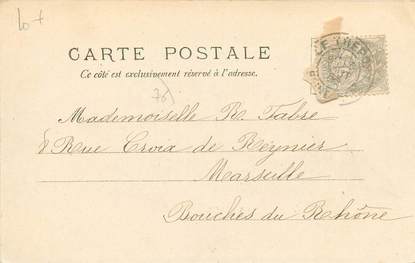 lo +
CARTE POSTALE
Ce côté est exclusivement réservé à l'adresse.
Mademoiselle R. Fabre
8 Rue Croix de Reynier
Marseille
Bouches du Rhône